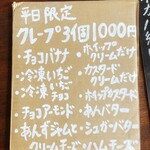 平日限定
クレープ3個1000円
・チョコバナナ
・ホイップクリームだけ
・冷凍いちご
・カスタードクリームだけ
・冷凍いちごチョコ
・ホイップカスタード
・チョコアーモンド
・あんバター
・あんギャム
・シュガーバター
・クリームチーズ
・ハムチーズ